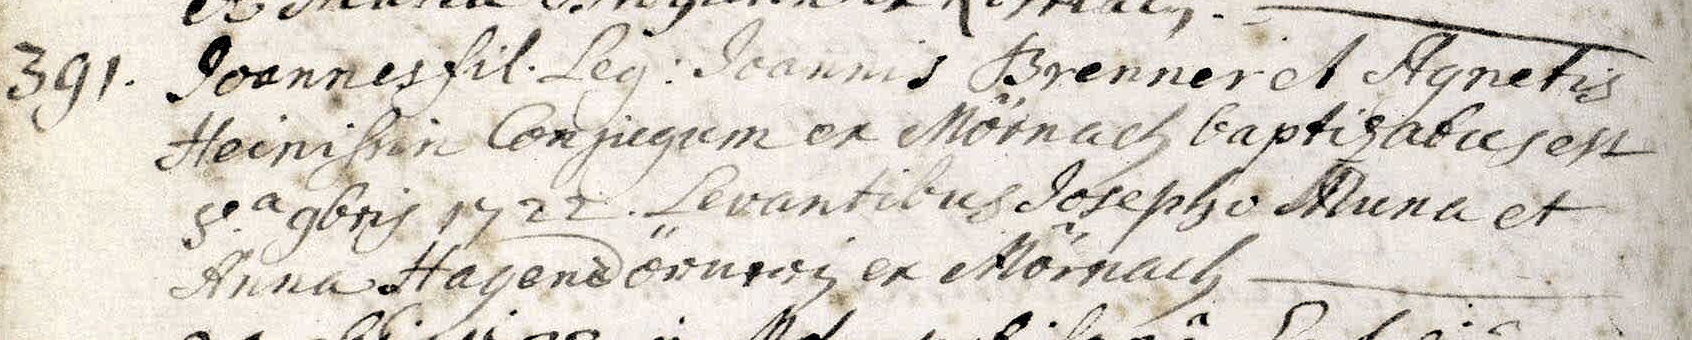 391. Joannes fil. Leg: Joannis Brenner et Agnetis
Heinissin Conjugum ex Mörnach baptizatus est
5.a 9bris 1722. Levantibus Josepho Muna et
Anna ex Mörnach